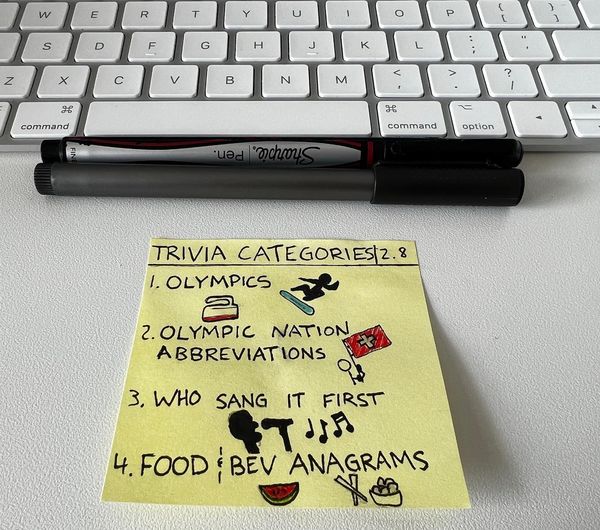 W E R T Y U I O P { [ } ]
S D F G H J K L : ; " '
Z X C V B N M < , > . ? /
⌘ command ⌘ command ⌥ option
FIN Pen. Sharpie.
TRIVIA CATEGORIES|2.8
1. OLYMPICS
2. OLYMPIC NATION
ABBREVIATIONS
3. WHO SANG IT FIRST
4. FOOD & BEV ANAGRAMS